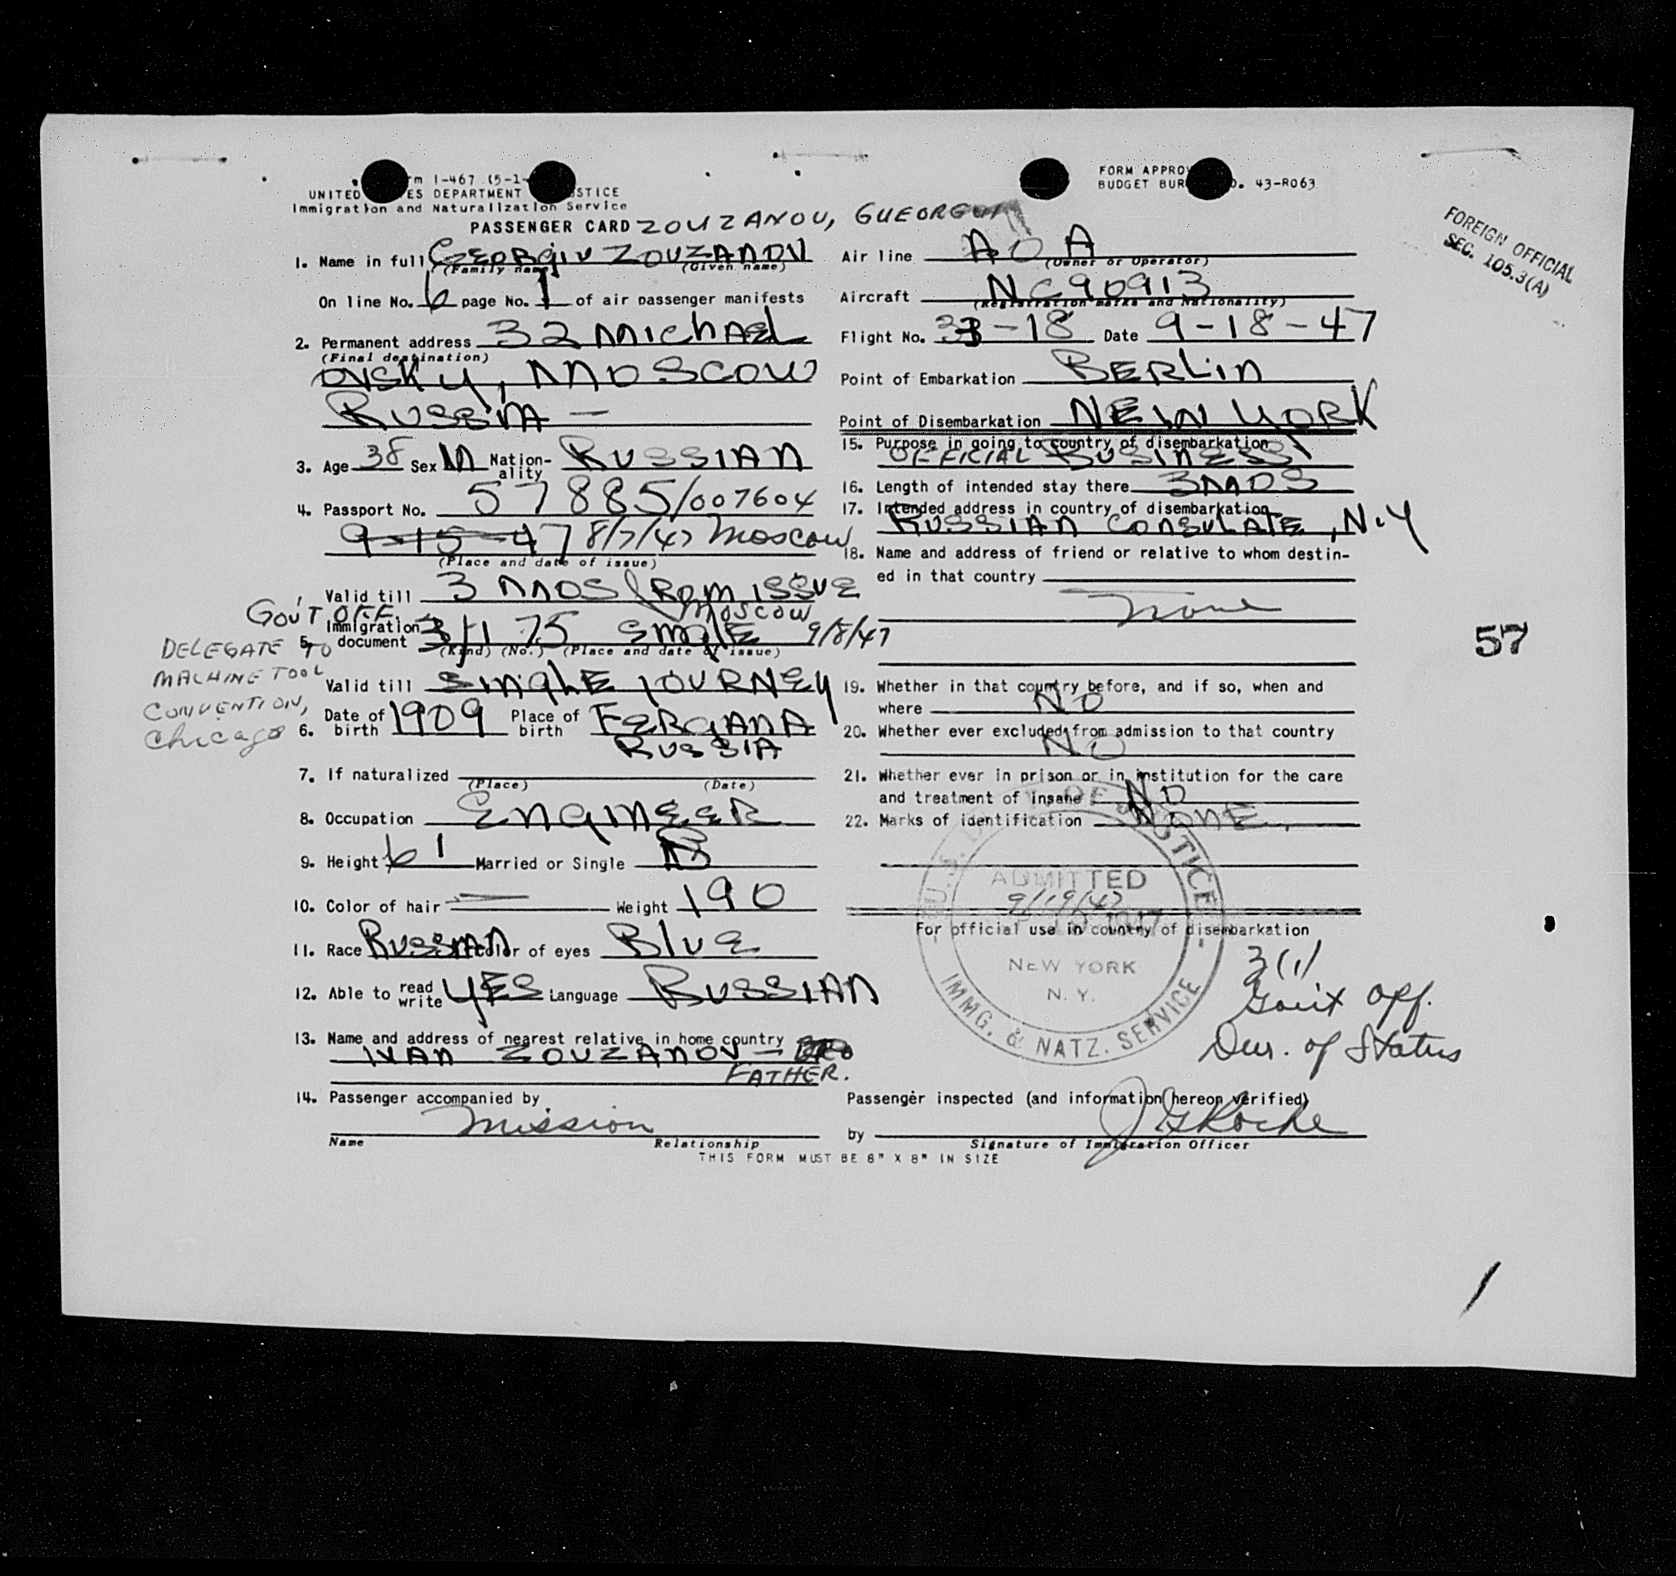 I-467 (5-1-
UNITED ES DEPARTMENT STICE
Immigration and Naturalization Service
FORM APPRO
BUDGET BUR O. 43-R063
PASSENGER CARD ZOUZANOV, GUEORGUI
FOREIGN OFFICIAL
SEC. 105.3(A)
1. Name in full GEORGIU ZOUZANOV
(Family name) (Given name)
On line No. 6 page No. 1 of air passenger manifests
2. Permanent address 32 MICHAEL
(Final destination)
OVSKY, MOSCOW
RUSSIA —
3. Age 38 Sex M Nation-ality RUSSIAN
4. Passport No. 57885/007604
9-15-47 8/7/47 Moscow
(Place and date of issue)
Valid till 3 MOS FROM ISSUE
GOV'T OFF. Moscow
5. Immigration document 3/1 75 SINGLE 9/8/47
(Kind) (No.) (Place and date of issue)
DELEGATE TO
MACHINE TOOL
CONVENTION,
Chicago
Valid till SINGLE JOURNEY
6. Date of birth 1909 Place of birth FERGANA
RUSSIA
7. If naturalized
(Place) (Date)
8. Occupation ENGINEER
9. Height 6 1 Married or Single
10. Color of hair — Weight 190
11. Race RUSSIAN Color of eyes BLUE
12. Able to read write YES Language RUSSIAN
13. Name and address of nearest relative in home country
IVAN ZOUZANOV —
FATHER.
14. Passenger accompanied by
Mission
Name Relationship
Air line A O A
(Owner or Operator)
Aircraft NC90913
(Registration marks and Nationality)
Flight No. -18 Date 9-18-47
Point of Embarkation BERLIN
Point of Disembarkation NEW YORK
15. Purpose in going to country of disembarkation
OFFICIAL BUSINESS
16. Length of intended stay there 3 MOS
17. Intended address in country of disembarkation
RUSSIAN CONSULATE, N.Y
18. Name and address of friend or relative to whom destin-
ed in that country
None
57
19. Whether in that country before, and if so, when and
where NO
20. Whether ever excluded from admission to that country
NO
21. Whether ever in prison or in institution for the care
and treatment of insane NO
22. Marks of identification NONE.
U.S. DEPT. OF JUSTICE
ADMITTED
9/19/47
NEW YORK
N. Y.
IMMG. & NATZ. SERVICE
For official use in country of disembarkation
3(1)
Gov't Off.
Dur. of Status
Passenger inspected (and information hereon verified)
by J G Roche
Signature of Immigration Officer
THIS FORM MUST BE 8" X 8" IN SIZE